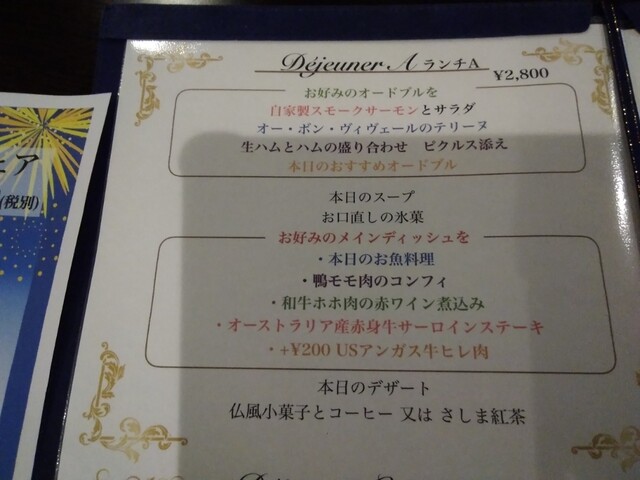 Déjeuner A ランチA
¥2,800
お好みのオードブルを
自家製スモークサーモンとサラダ
オー・ボン・ヴィヴェールのテリーヌ
生ハムとハムの盛り合わせ ピクルス添え
本日のおすすめオードブル
本日のスープ
お口直しの氷菓
お好みのメインディッシュを
・本日のお魚料理
・鴨モモ肉のコンフィ
・和牛ホホ肉の赤ワイン煮込み
・オーストラリア産赤身牛サーロインステーキ
・+¥200 USアンガス牛ヒレ肉
本日のデザート
仏風小菓子とコーヒー 又は さしま紅茶
ェア
(税別)